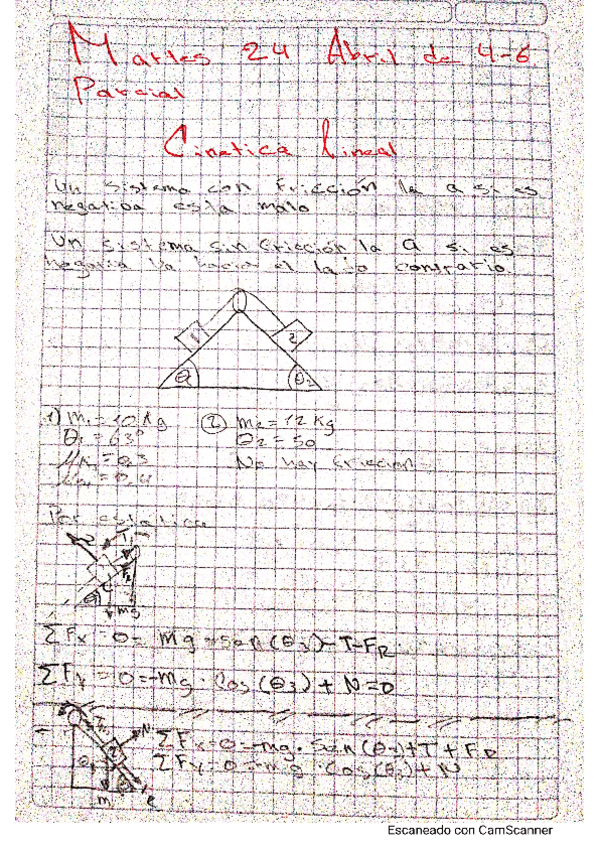 Martes 24 Abril de 4-6
Parcial
Cinetica lineal
Un sistema con fricción la a si es
negativa esta malo
Un sistema sin fricción la a si es
negativa va hacia el lado contrario.
1 2
θ θ2
1) m1 = 10 Kg ② m2 = 12 Kg
θ1 = 63° θ2 = 50
μk = 0,3 No hay friccion
Por estatica
T
mg
ΣFx = 0 = mg · sen(θ2) - T - FR
ΣFy = 0 = -mg · Cos(θ2) + N = 0
ΣFx = 0 = -mg · sen(θ2) + T + FR
ΣFy = 0 = -mg · Cos(θ2) + N
Escaneado con CamScanner